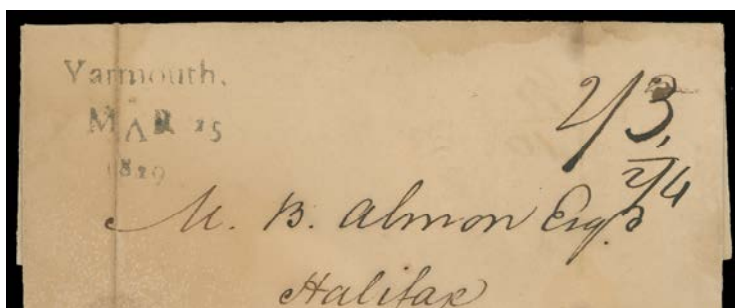 Yarmouth.
MAR 25
1829
2/3,
2/4
M. B. Almon Esqr
Halifax